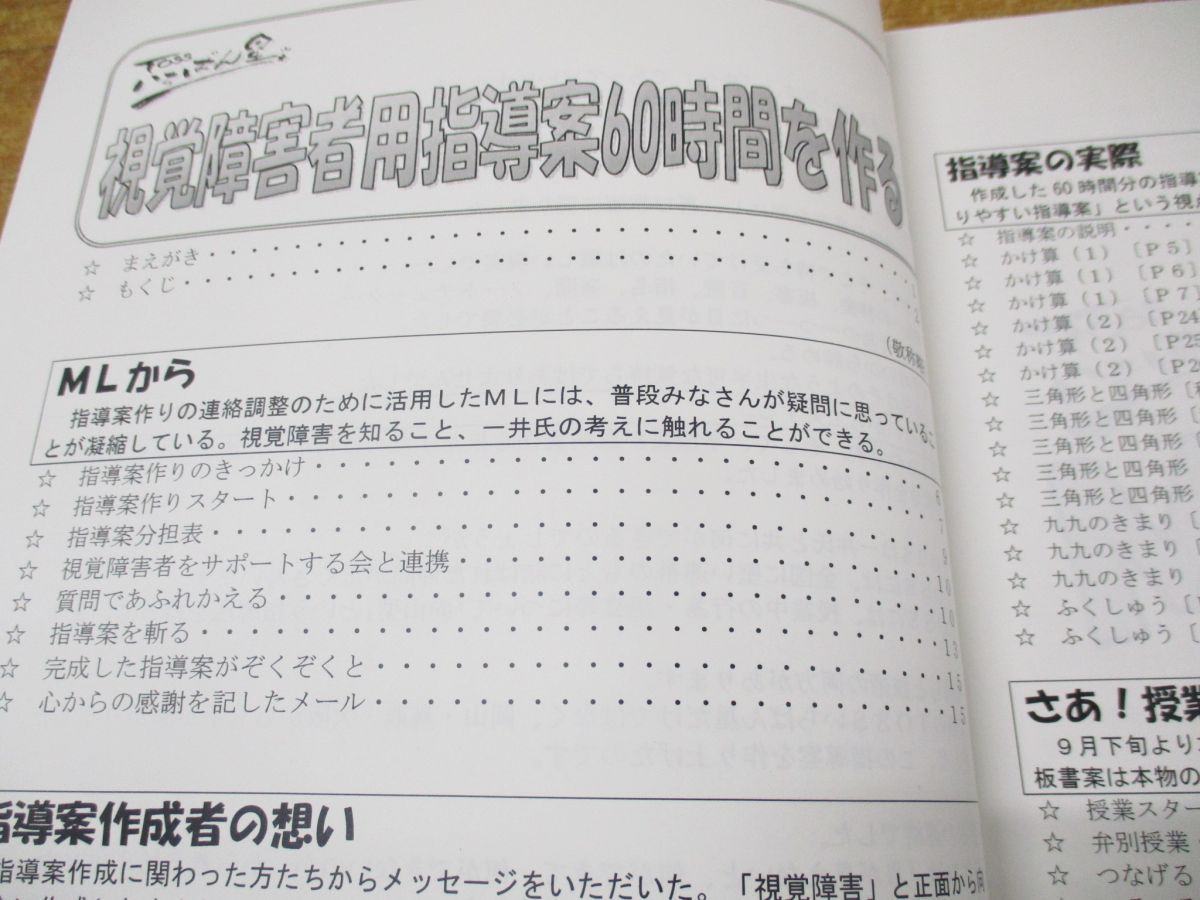 TOSS
視覚障害者用指導案60時間を作る
☆ まえがき・・・・・・・・・・・・・・・・・・・・・・・・・・・・・・1
☆ もくじ・・・・・・・・・・・・・・・・・・・・・・・・・・・・・・・2
(敬称略
MLから
指導案作りの連絡調整のために活用したMLには、普段みなさんが疑問に思っているこ
とが凝縮している。視覚障害を知ること、一井氏の考えに触れることができる。
☆ 指導案作りのきっかけ・・・・・・・・・・・・・・・・・・・・・・・・6
☆ 指導案作りスタート・・・・・・・・・・・・・・・・・・・・・・・・・7
☆ 指導案分担表・・・・・・・・・・・・・・・・・・・・・・・・・・・・9
☆ 視覚障害者をサポートする会と連携・・・・・・・・・・・・・・・・・・10
☆ 質問であふれかえる・・・・・・・・・・・・・・・・・・・・・・・・・10
☆ 指導案を斬る・・・・・・・・・・・・・・・・・・・・・・・・・・・・13
☆ 完成した指導案がぞくぞくと・・・・・・・・・・・・・・・・・・・・・15
☆ 心からの感謝を記したメール・・・・・・・・・・・・・・・・・・・・・15
指導案作成者の想い
指導案作成に関わった方たちからメッセージをいただいた。「視覚障害」と正面から向
指導案の実際
作成した60時間分の指導
りやすい指導案」という視点
☆ 指導案の説明・・・・
☆ かけ算（1）〔P5〕
☆ かけ算（1）〔P6〕
☆ かけ算（1）〔P7〕
☆ かけ算（2）〔P24
☆ かけ算（2）〔P25
☆ かけ算（2）〔P2
☆ 三角形と四角形〔
☆ 三角形と四角形〔
☆ 三角形と四角形〔
☆ 三角形と四角形
☆ 三角形と四角形
☆ 九九のきまり〔
☆ 九九のきまり
☆ 九九のきまり
☆ ふくしゅう〔
☆ ふくしゅう〔
さあ！授業
9月下旬より
板書案は本物の
☆ 授業スター
☆ 弁別授業・
☆ つなげる